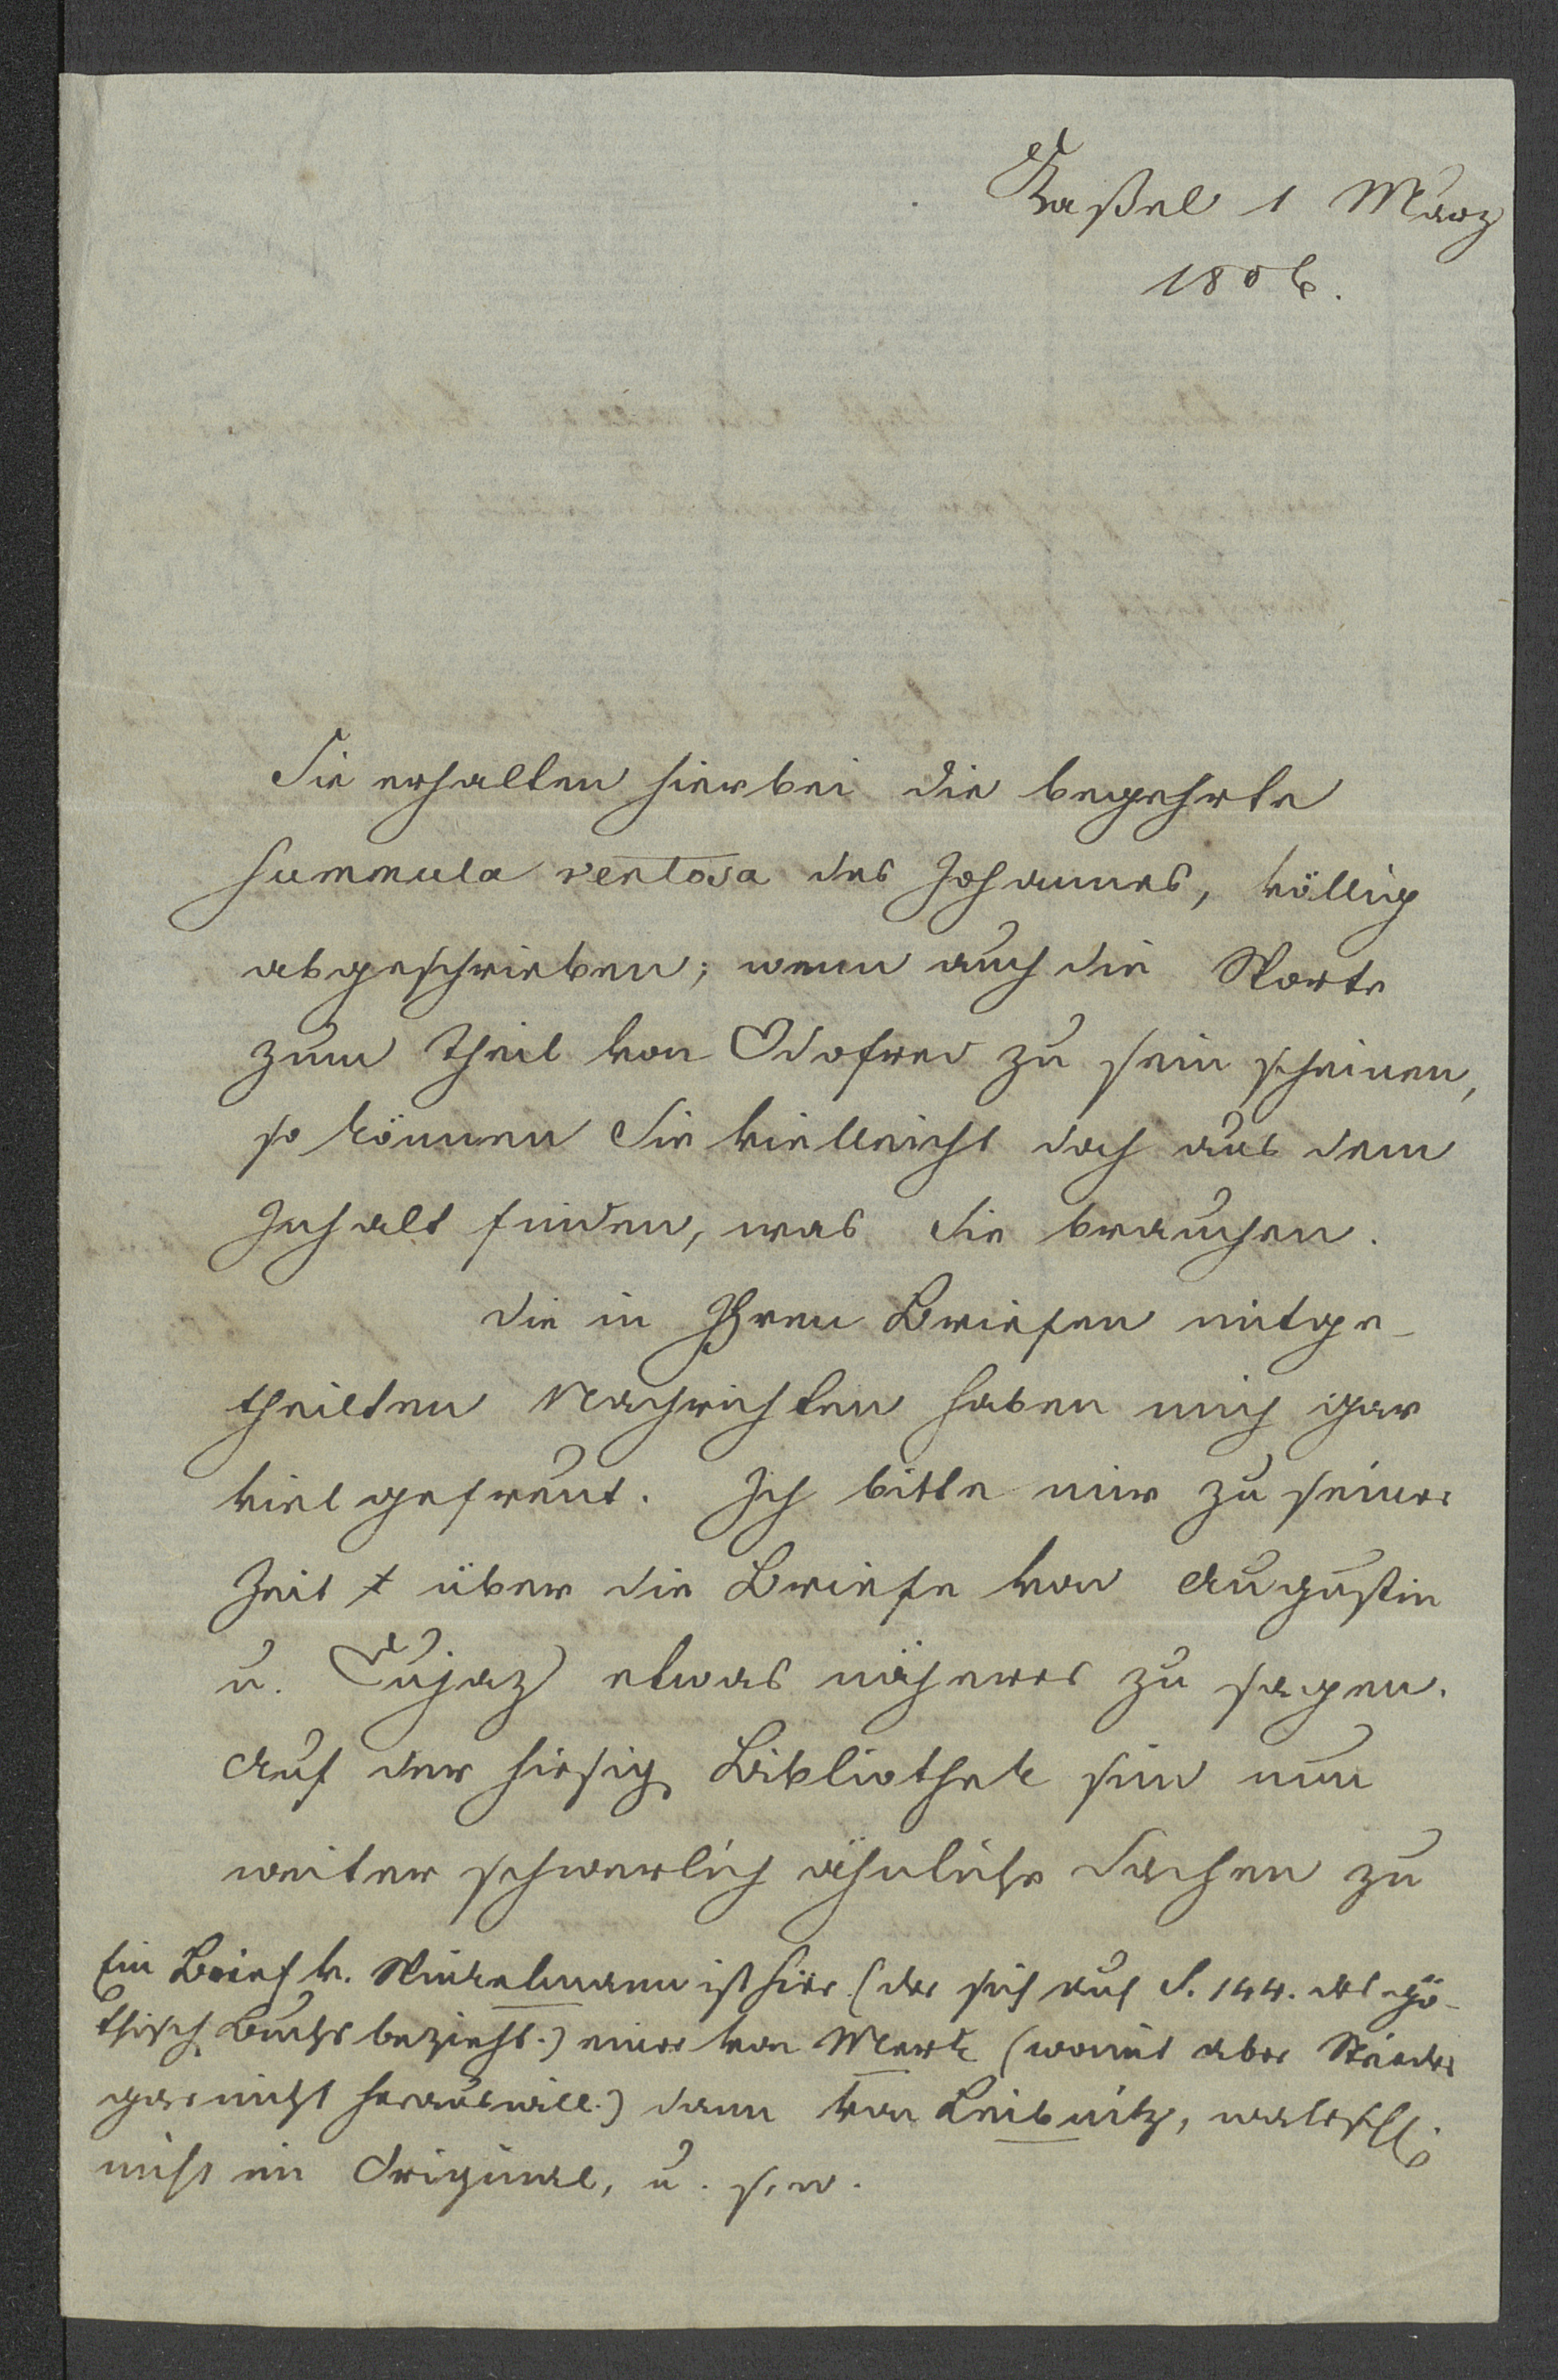 Kaßel 1 Maerz
1806.
Sie erhalten hierbei die begehrte
Summula ventosa des Johannes, völlig
abgeschrieben; wenn auch die Worte
zum Theil von Odofred zu sein scheinen,
so können Sie vielleicht doch aus dem
Inhalt finden, was Sie brauchen.
Die in Ihren Briefen mitge-
theilten Nachrichten haben mich gar
viel gefreut. Ich bitte mir zu seiner
Zeit über die Briefe von Augustin
u. Cujaz etwas näheres zu sagen.
Auf der hiesig Bibliothek sind nun
weiter schwerlich ähnliche Sachen zu
Ein Brief v. Winkelmann ist hier (der sich auf S. 144. des gö-
thisch Buchs bezieht.) einer von Merk (womit aber Strieder
gar nicht heraus will.) dann von Leibnitz, wahrschl.
nicht im Original, u. s. w.